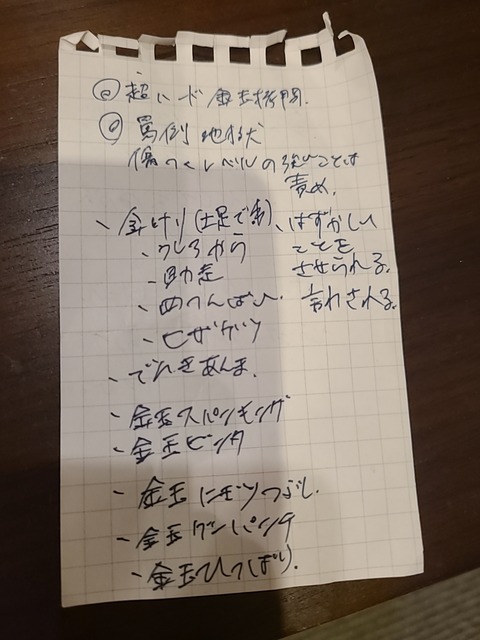 ◎超ハード金玉拷問.
◎罵倒地獄
傷つくレベルの強いことば
責め.
、金けり(土足で
、うしろから
、助走
、めつんばい.
、ヒザゲリ
、はずかしい
ことを
させられる.
言わされる.
、でんきあんま.
、金玉スパンキング
、金玉ビンタ
、金玉にぎりつぶし.
、金玉グーパンチ
、金玉ひっぱり.